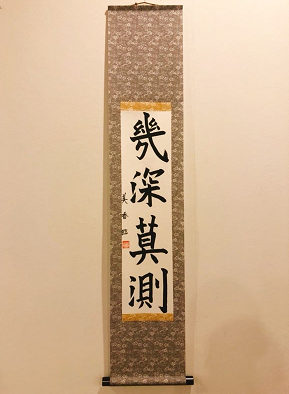 幾深莫測
美香臨